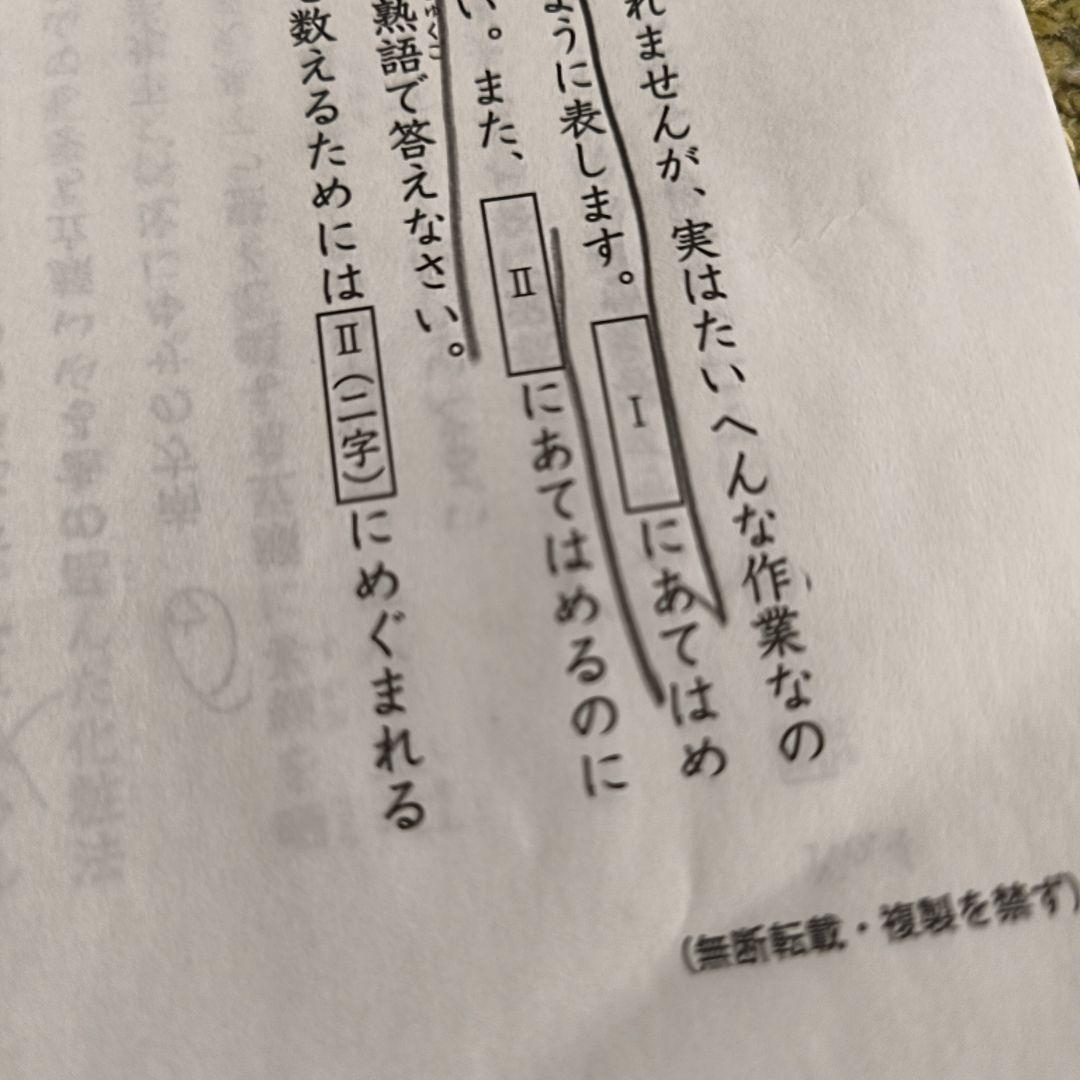 れませんが、実はたいへんな作業なの
ように表します。 Ⅰ にあてはめ
い。また、 Ⅱ にあてはめるのに
熟語で答えなさい。
数えるためには Ⅱ(二字) にめぐまれる
(無断転載・複製を禁ず)